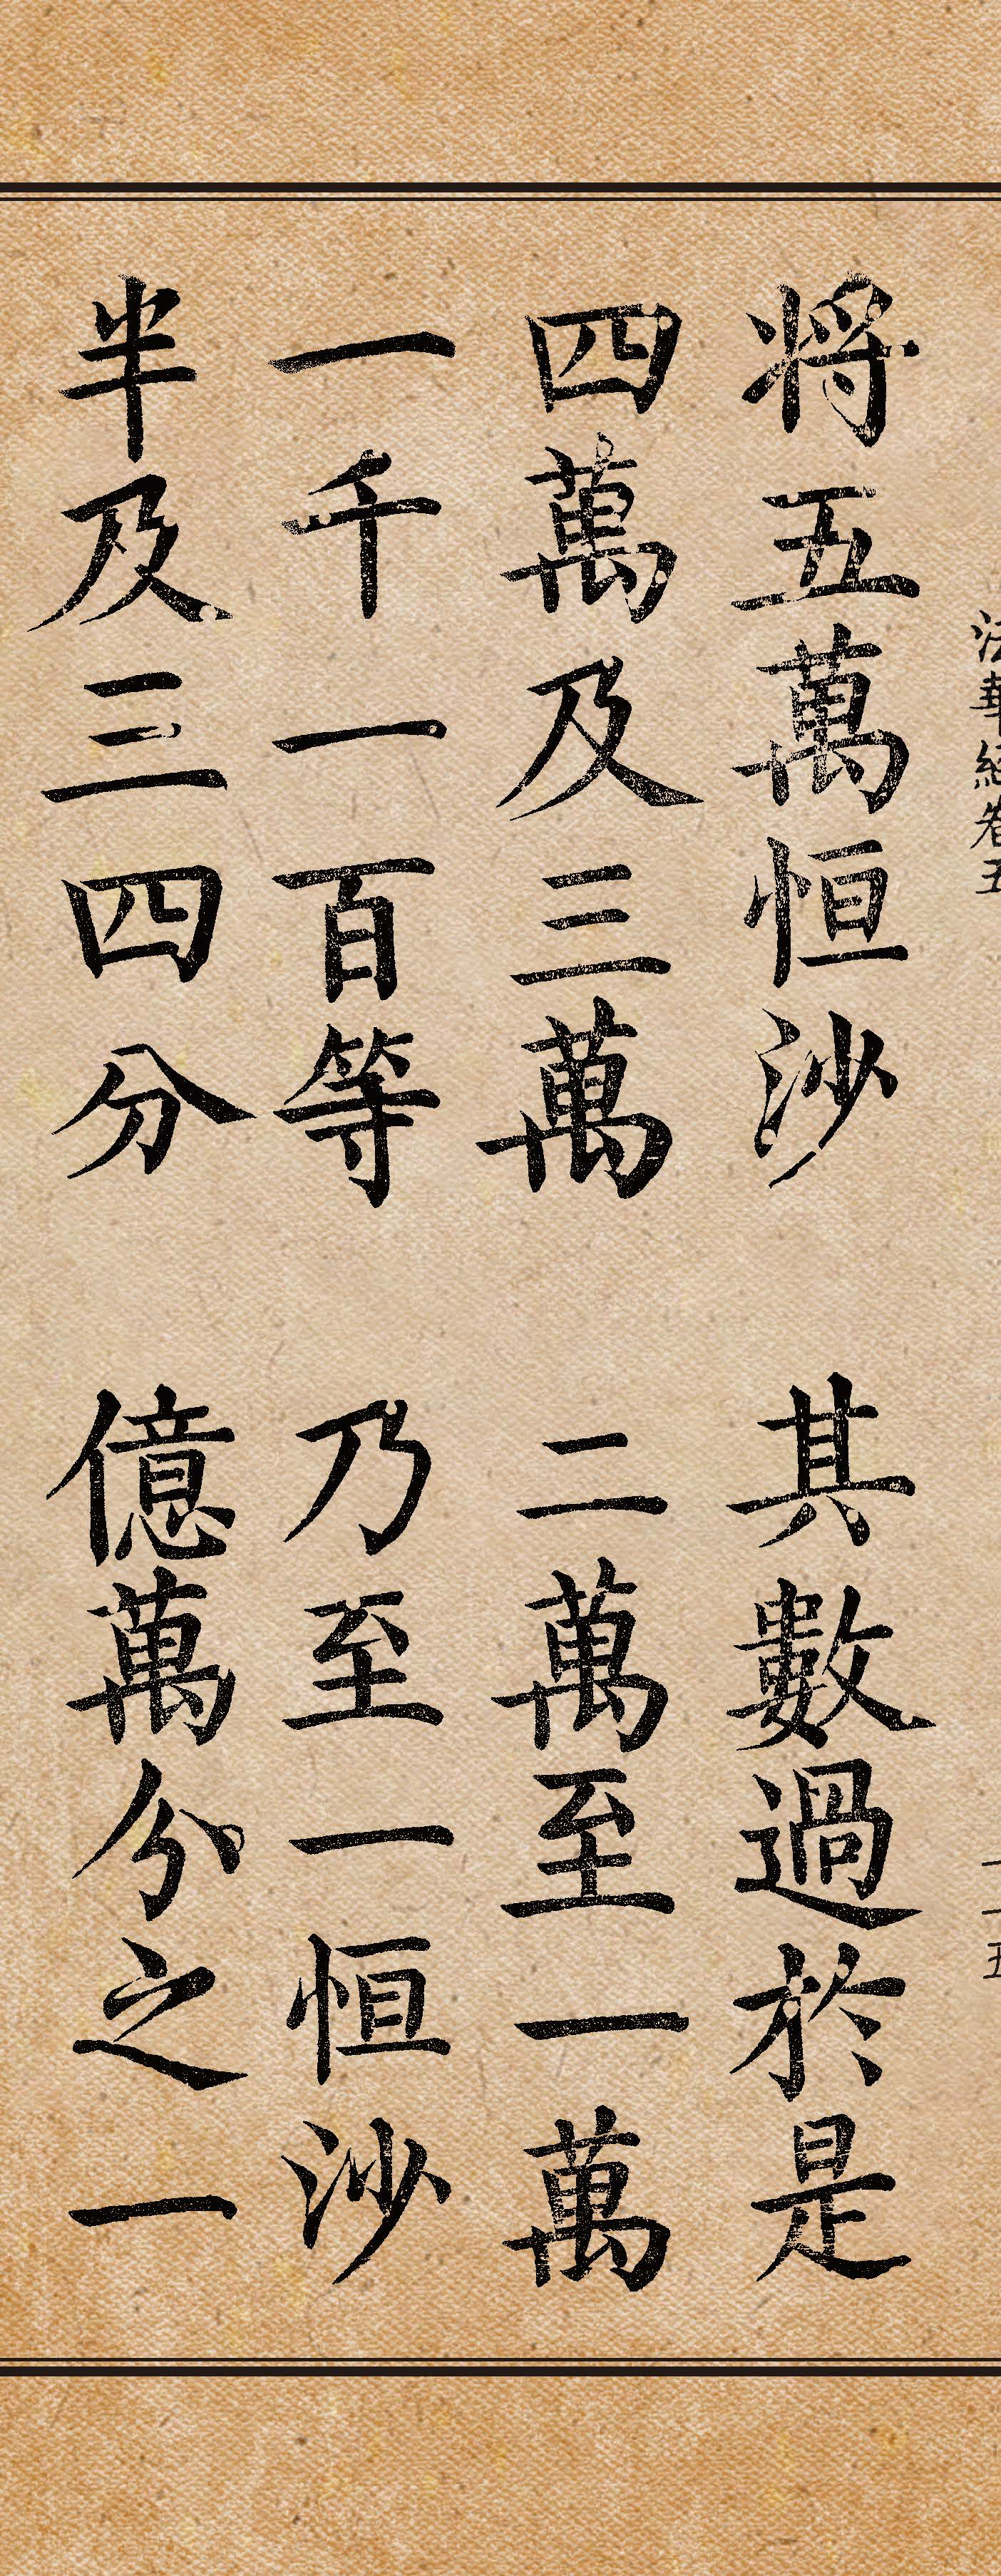 法華經卷五
二五
將五萬恒沙 其數過於是
四萬及三萬 二萬至一萬
一千一百等 乃至一恒沙
半及三四分 億萬分之一